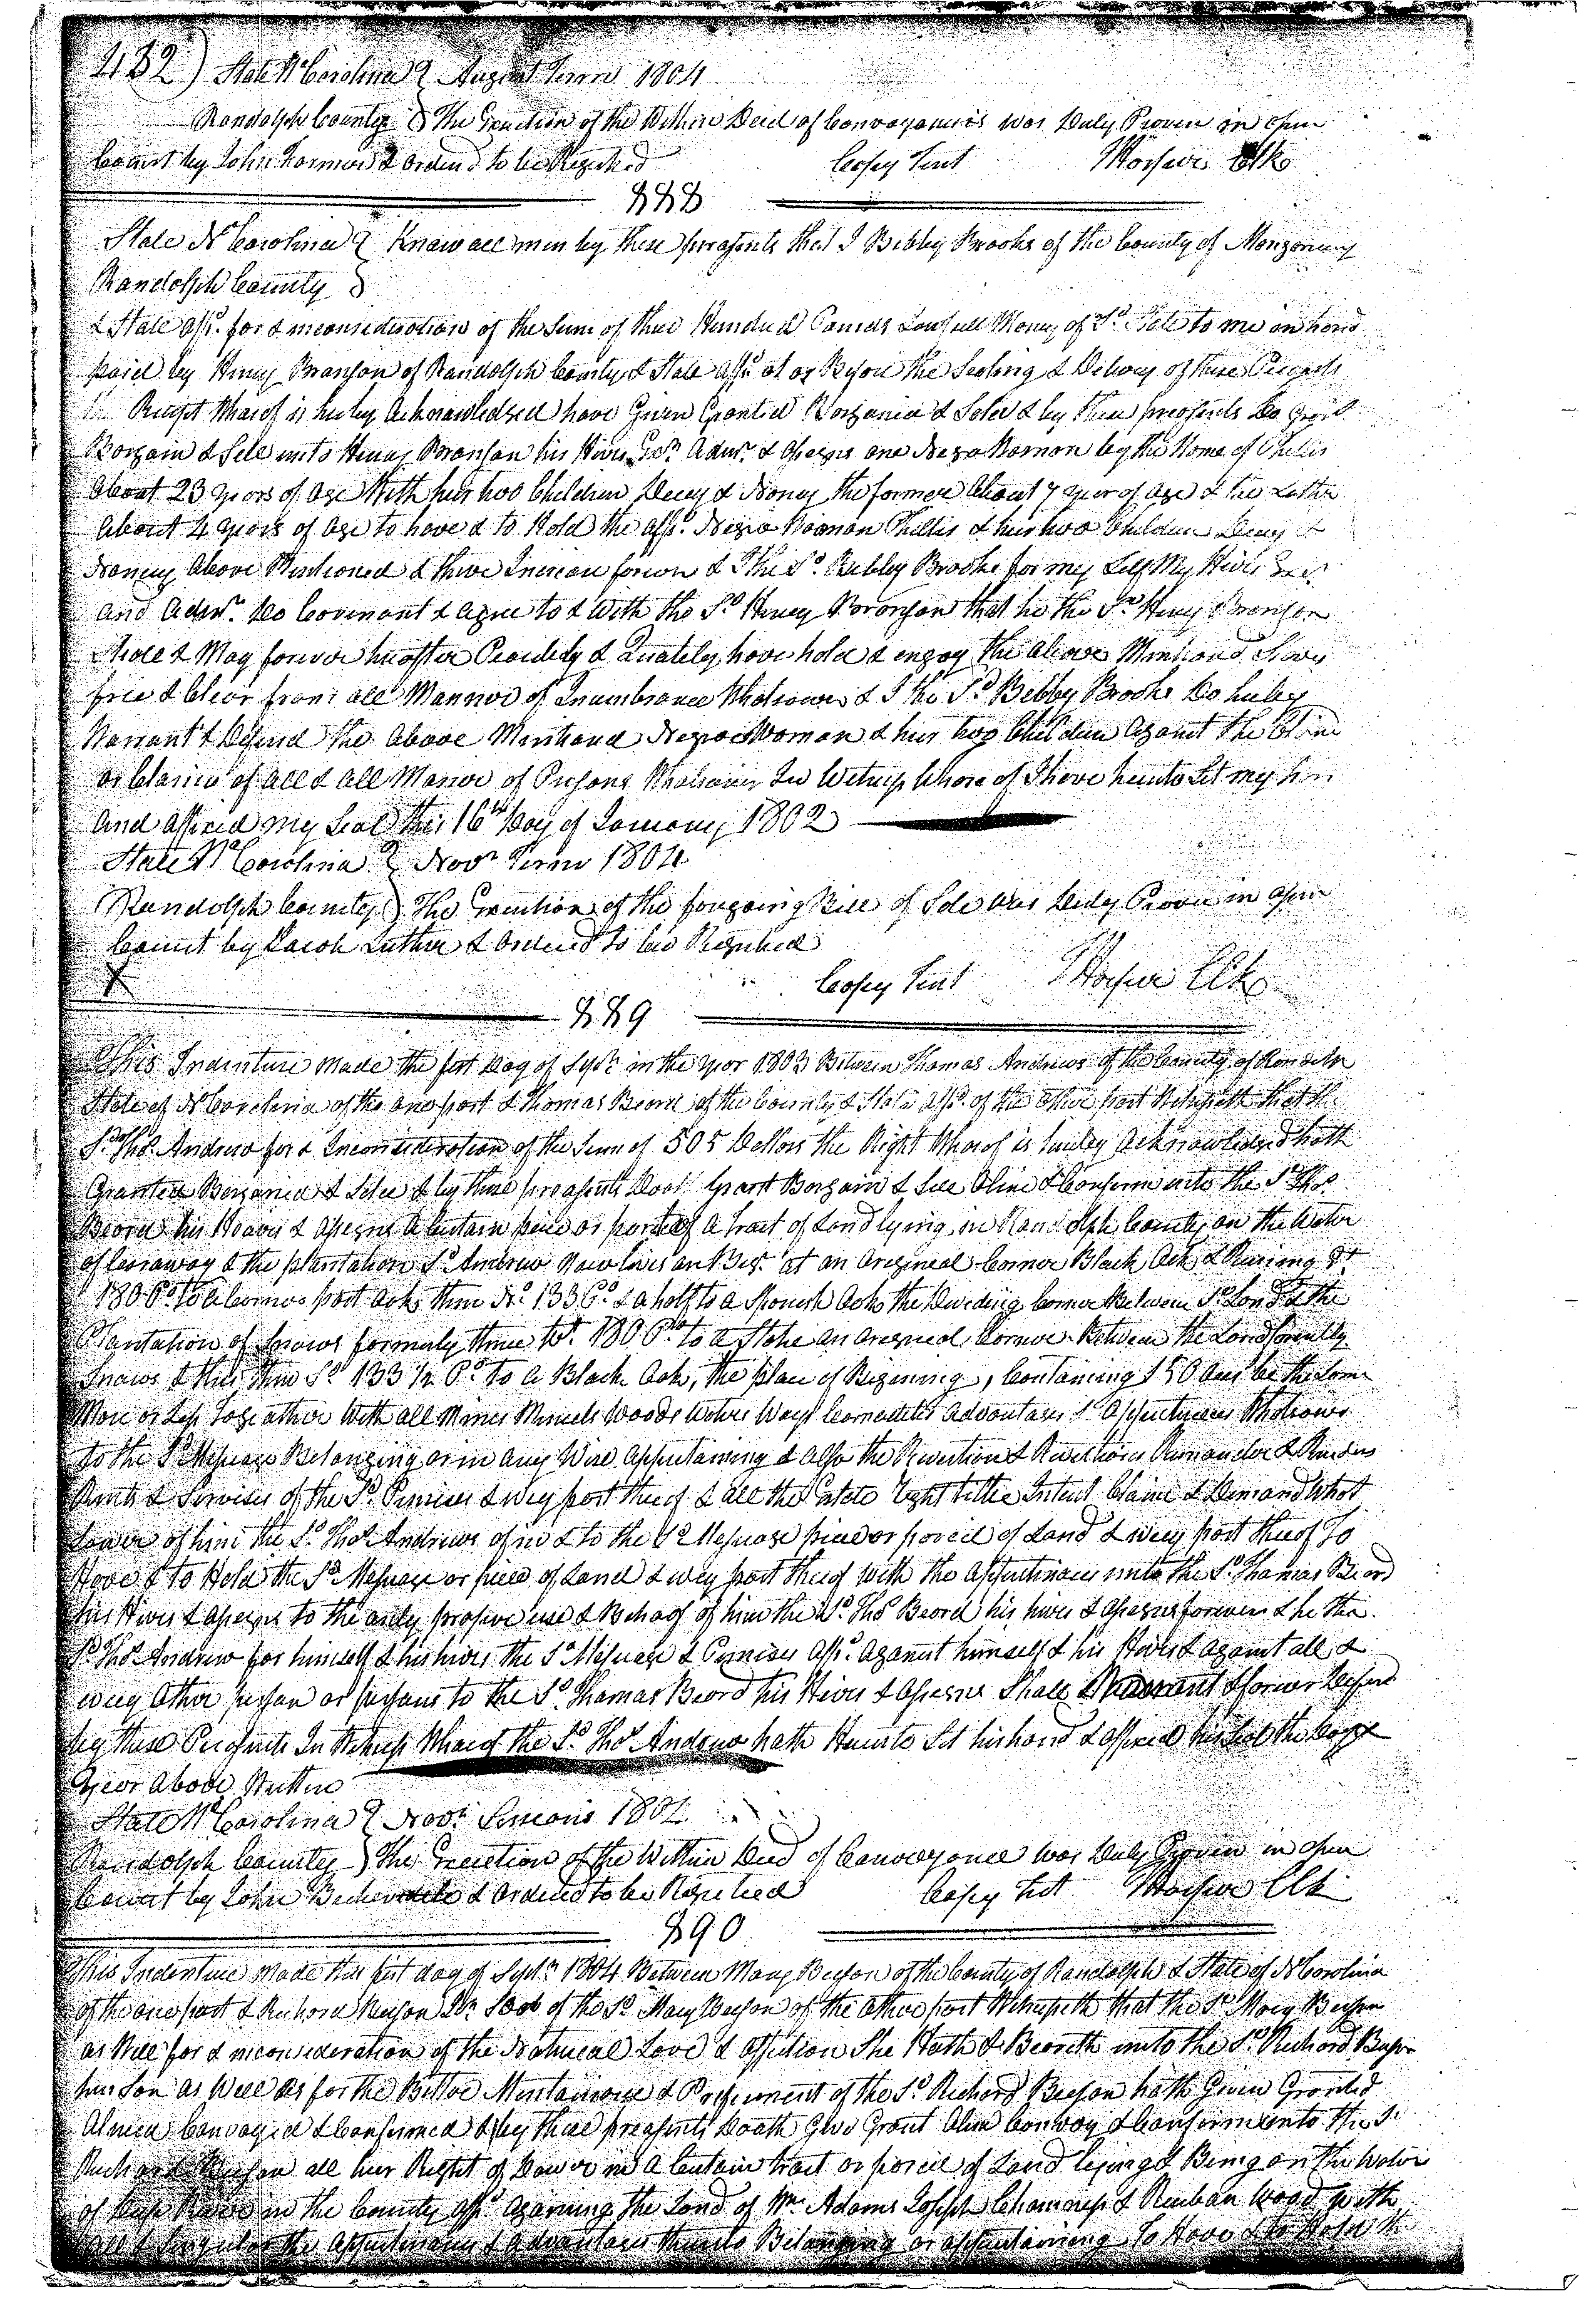 432) State N Carolina } August Term 1804
Randolph County } The Execution of the Within Deed of Conveyance was Duly Proven in open
Court by John & ordered to be Registred Copy Test J Harper Clk
888
State N Carolina } Know all men by these presents that I Bebby Brooks of the County of Mongomry
Randolph County }
& State affsd. for & inconsideration of the Sum of three Hundred Pounds Lawfull Money of Sd. State to me in hand
paid by Henry Branson of Randolph County & State affsd at or Before the Sealing & Delivery of these Presents
Receipt Wharof is hereby Acknowledged have Given Granted Barganed & Soled & by these presents Do Grant
Bargain & Sell unto Henry Branson his Heirs Exrs. Admrs. & Assigns one Negro Woman by the Name of Phillis
About 23 years of age With her two Children Decy & Nancy the former About 7 year of age & the Latter
About 4 years of age to have & to Hold the affsd. Negro Woman Phillis & her two Children Decy &
Nancy Above Mentioned & thire Increase forever & I the Sd. Bebby Brooks for my Self My Heirs Exrs
and Admrs. Do Covenant & agree to & with the Sd Henry Branson that he the Sd Henry Branson
Shall & May forever hereafter Peacebly & Quietely have hold & enjoy the Above Mentioned Slaves
free & Clear from all Mannor of Incumbrance Whatsoever & I the Sd Bebby Brooks Do hereby
Warrant & Defend the above Mentioned Negro Woman & her two Children Against the Claim
or Claims of all & all Manor of Persons Whatsoever In Witness Whare of I have hereunto Set my han
And affixed my Seal this 16th Day of January 1802
State N Carolina } Novr Term 1804
Randolph County } The Execution of the foregoing Bill of Sale was Duly Proven in open
Court by Jacob Luther & ordered to be Registred
X Copy Test J Harper Clk
889
This Indenture made the first Day of Septr. in the year 1803 Between Thomas Andrews of the County of Randolph
State of N Carolina of the one part & Thomas Beard of the County & State affsd. of the other part Witnesseth that the
Sd. Thos. Andrew for & Inconsideration of the Sum of 505 Dollors the Right Wharof is hereby Acknowledged hath
Granted Barganed & Soled & by these presents Doth Grant Bargain & Sell Aline & Confirm unto the Sd. Thos.
Beard his Heairs & Assigns a Certain piece or part of a tract of Land lying in Randolph County on the Water
of Carraway & the plantation Sd. Andrew Now lives on Beg. at an Areginal Corner Black Oak & Runing Et
180 Po. to a Corner post Oak then No. 133 Po. & a half to a Spanish Oak the Deviding Corner Between Sd. Land & the
Plantation of Snows formerly thence Wt. 180 Po. to a Stake an Areginal Corner Between the Land formerly
Snows & this then So. 133 1/2 Po. to a Black Oak, the place of Begening, Containing 150 Acres be the Same
More or Less Togeather With all Mines Minerals Woods Waters Ways Comodities Advantages & Appurtenances Whatsoever
to the Sd Messuage Belonging or in any Wise Appertaining & also the Revertion & Revertions Remander & Remainders
Rents & Servises of the Sd. Premises & every part thereof & all the Estate Right tittle Intrest Claime & Demand What
soever of him the Sd. Thos Andrews of in & to the Sd Messuage piece or parcel of Land & every part thereof To
Have & to Hold the Sd. Messuage or piece of Land & every part thereof with the Appurtinances unto the Sd. Thomas Beard
his Heirs & Assigns to the only propive use & Behoof of him the Sd. Thos Beard his heirs & Assigns forever & he the
Sd. Thos. Andrew for himself & his heirs the Sd Messuage & Premises affsd. against himself & his Heirs & against all &
every other person or persons to the Sd. Thomas Beard his Heirs & Assigns Shall & Warrant & forever Defend
by these Presents In Witness Whareof the Sd. Thos Andrew hath Hereunto Set his hand & affixed his Seal the Day &
Year Above Written
State N Carolina } Novr. Sessions 1804
Randolph County } The Execution of the Within Deed of Conveyance was Duly Proven in open
Court by John & ordered to be Registred Copy Test J Harper Clk
890
This Indenture made this first day of Septr. 1804 Between Mary Beeson of the County of Randolph & State of N Carolina
of the one part & Richard Beeson Son of the Sd. Mary Beeson of the other part Witnesseth that the Sd. Mary Beeson
as Well for & inconsideration of the Natural Love & Affection She Hath & Beareth unto the Sd. Richard Beeson
her Son as Well as for the Better Mentainance & Preferment of the Sd. Richard Beeson hath Given Granted
Aliened Convayed & Confirmed & by these presents Doath Give Grant Alin Convay & Confirm unto the Sd
Richard Beeson all her Right of Dower in a Certain tract or parcel of Land lying & Being on the Water
of Deep River in the County affsd. ajoining the Land of Wm. Adams Joseph Chamness & Reuban Wood With
all & Singular the Appurtenances & Advantages thereunto Belonging or appertaining To Have & to Hold the